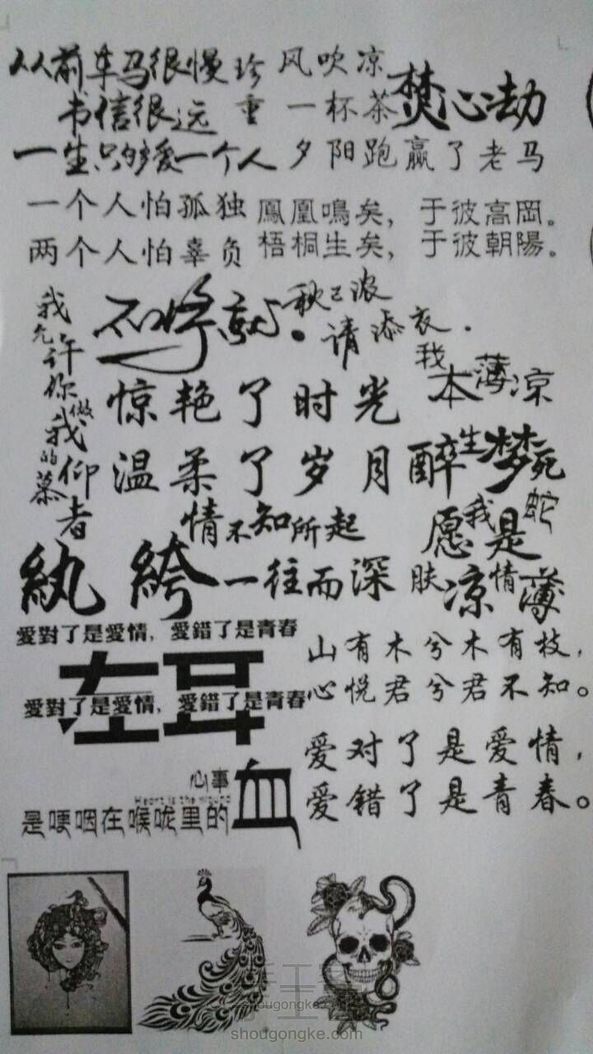 从前车马很慢
书信很远
一生只够爱一个人
珍重
风吹凉
一杯茶
夕阳跑赢了老马
焚心劫
一个人怕孤独
两个人怕辜负
鳳凰鳴矣，于彼高岡。
梧桐生矣，于彼朝陽。
我允许你做我的仰慕者
不将就
秋已浓
请添衣
我本薄凉
惊艳了时光
温柔了岁月
醉生梦死
情不知所起
一往而深
紈絝
我愿是蛇
肤凉情薄
愛對了是愛情，愛錯了是青春
左耳
愛對了是愛情，愛錯了是青春
山有木兮木有枝，
心悦君兮君不知。
爱对了是爱情，
爱错了是青春。
心事
Heart is the wound
是哽咽在喉咙里的血
手工客
shougongke.com
shougongke.com